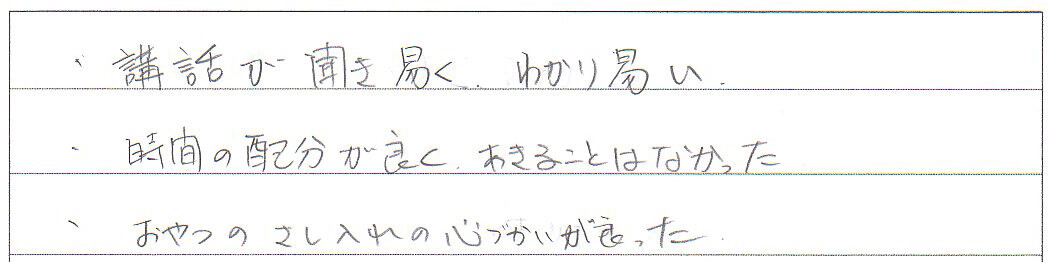 ・ 講話が聞き易く、わかり易い.
・ 時間の配分が良く、あきることはなかった
・ おやつのさし入れの心づかいが良った.